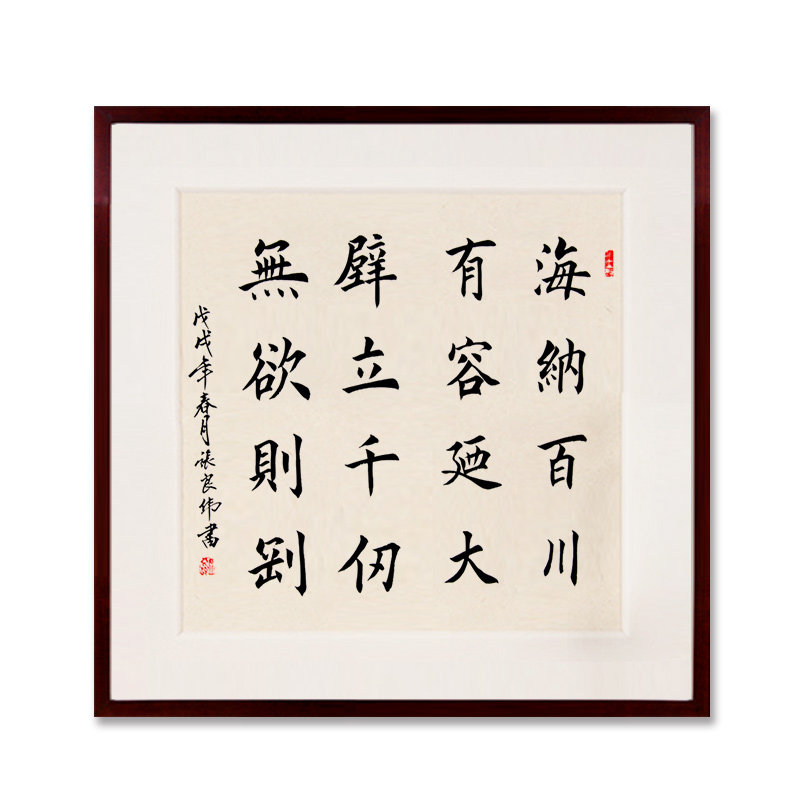 海納百川
有容廼大
壁立千仞
無欲則剛
戊戌年春月張良偉書